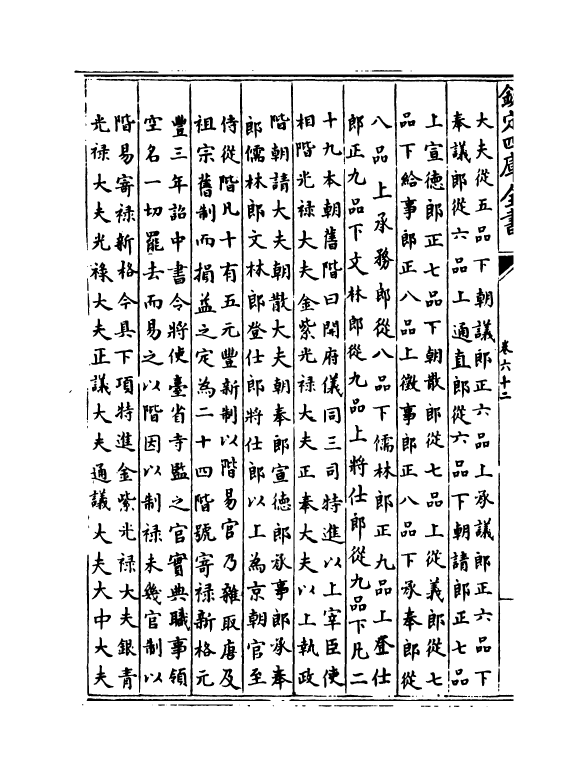 欽定四庫全書
卷六十二
大夫從五品下朝議郎正六品上承議郎正六品下
奉議郎從六品上通直郎從六品下朝請郎正七品
上宣德郎正七品下朝散郎從七品上從義郎從七
品下給事郎正八品上徵事郎正八品下承奉郎從
八品上承務郎從八品下儒林郎正九品上登仕
郎正九品下文林郎從九品上將仕郎從九品下凡二
十九本朝舊階曰開府儀同三司特進以上宰臣使
相階光禄大夫金紫光禄大夫正奉大夫以上執政
階朝請大夫朝散大夫朝奉郎宣德郎承事郎承奉
郎儒林郎文林郎登仕郎將仕郎以上為京朝官至
侍從階凡十有五元豐新制以階易官乃雜取唐及
祖宗舊制而損益之定為二十四階號寄禄新格元
豐三年詔中書令將使臺省寺監之官實典職事領
空名一切罷去而易之以階因以制禄未幾官制以
階易寄禄新格今具下項特進金紫光禄大夫銀青
光禄大夫光祿大夫正議大夫通議大夫大中大夫